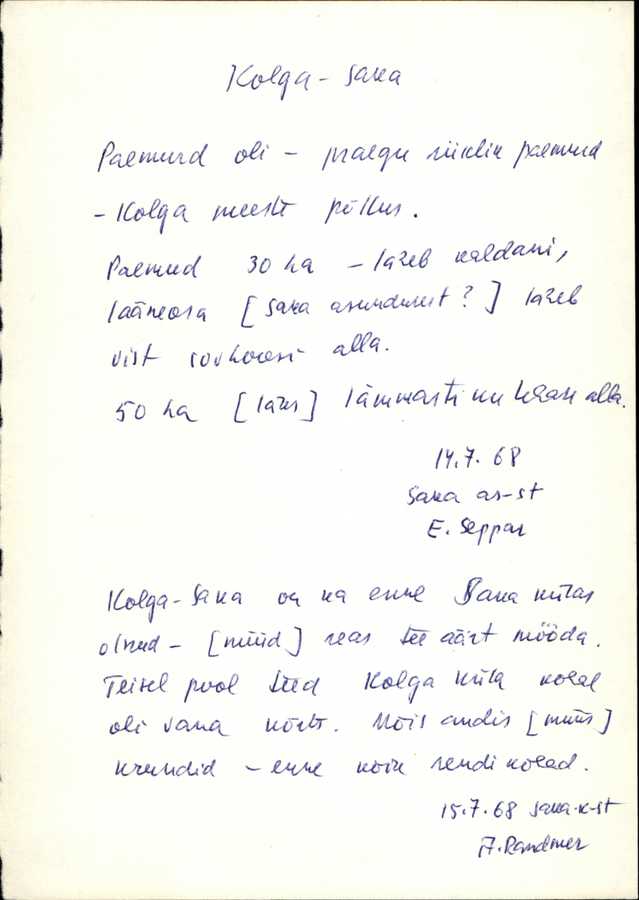 Kolga-Saka
Paemurd oli – praegu riiklik paemurd
– Kolga meeste põllus.
Paemurd 30 ha – läheb kaldani,
lääneosa [Saka asundusest?] läheb
vist sovhoosi alla.
50 ha [läks] lämmastiku tehase alla.
14.7.68
Saka as-st
E. Seppar
Kolga-Saka on ka enne Saka külas
olnud – [nüüd] reas tee äärt mööda.
Teisel pool teed Kolga küla kohal
oli vana kõrts. Mõis andis [müüs]
krundid – enne kõik rendikohad.
15.7.68 Saka k-st
A. Randmer